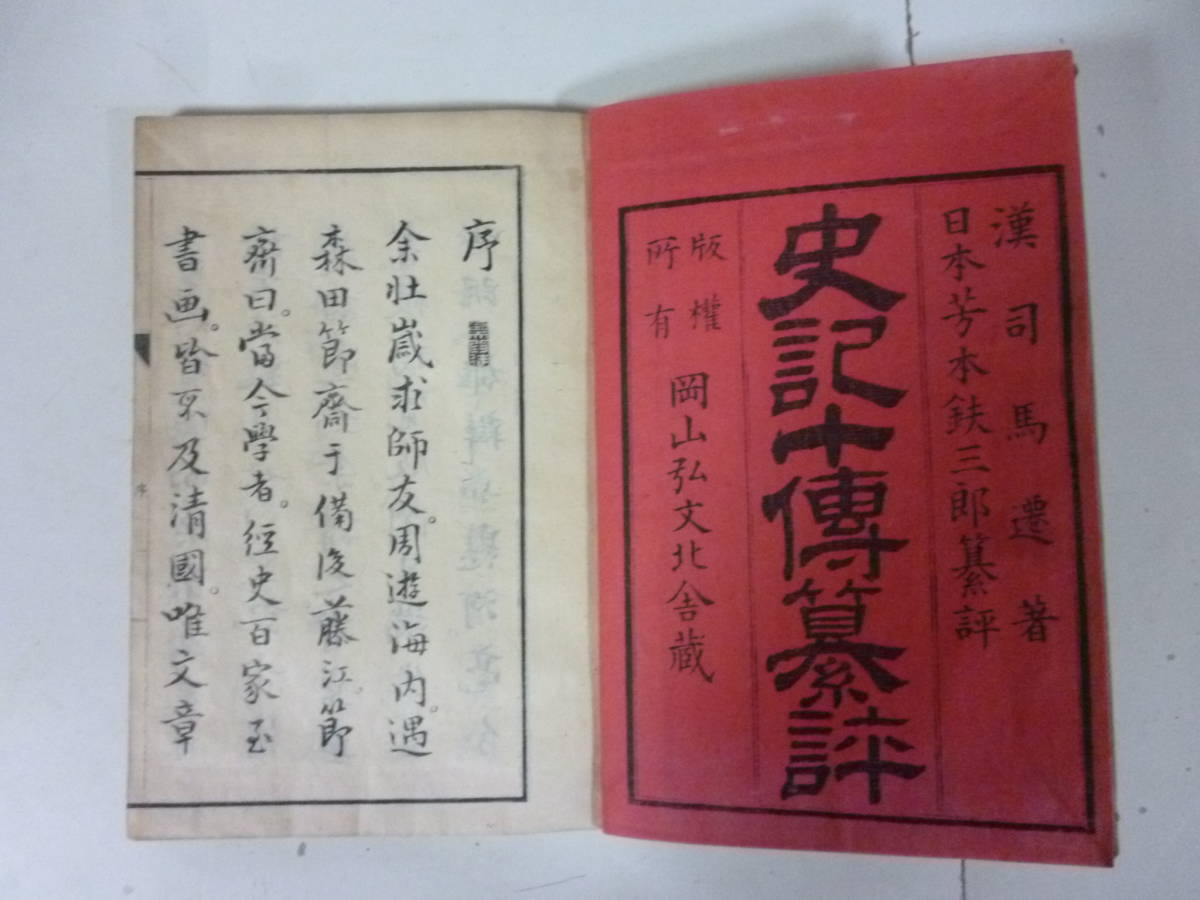 漢司馬遷著
日本芳本鉄三郎纂評
史記十傳纂評
版權
所有
岡山弘文北舎蔵
序
余壯歳求師友。周遊海内。遇
森田節齋于備後藤江。節
齋曰。當今學者。經史百家至
書画。皆不及清國。唯文章
序